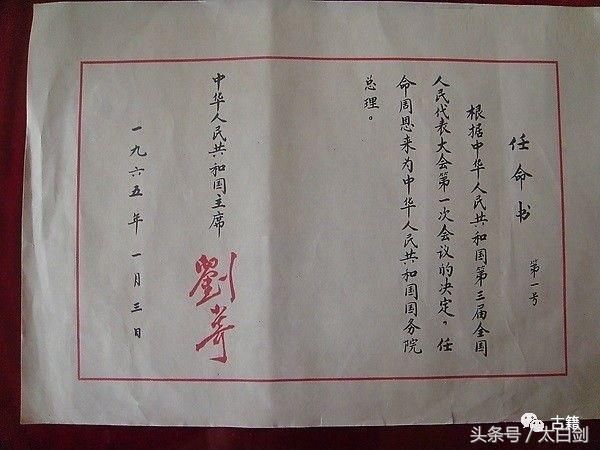 任命书
第一号
根据中华人民共和国第三届全国
人民代表大会第一次会议的决定，任
命周恩来为中华人民共和国国务院
总理。
中华人民共和国主席
劉少奇
一九六五年一月三日
古籍
头条号／太白剑